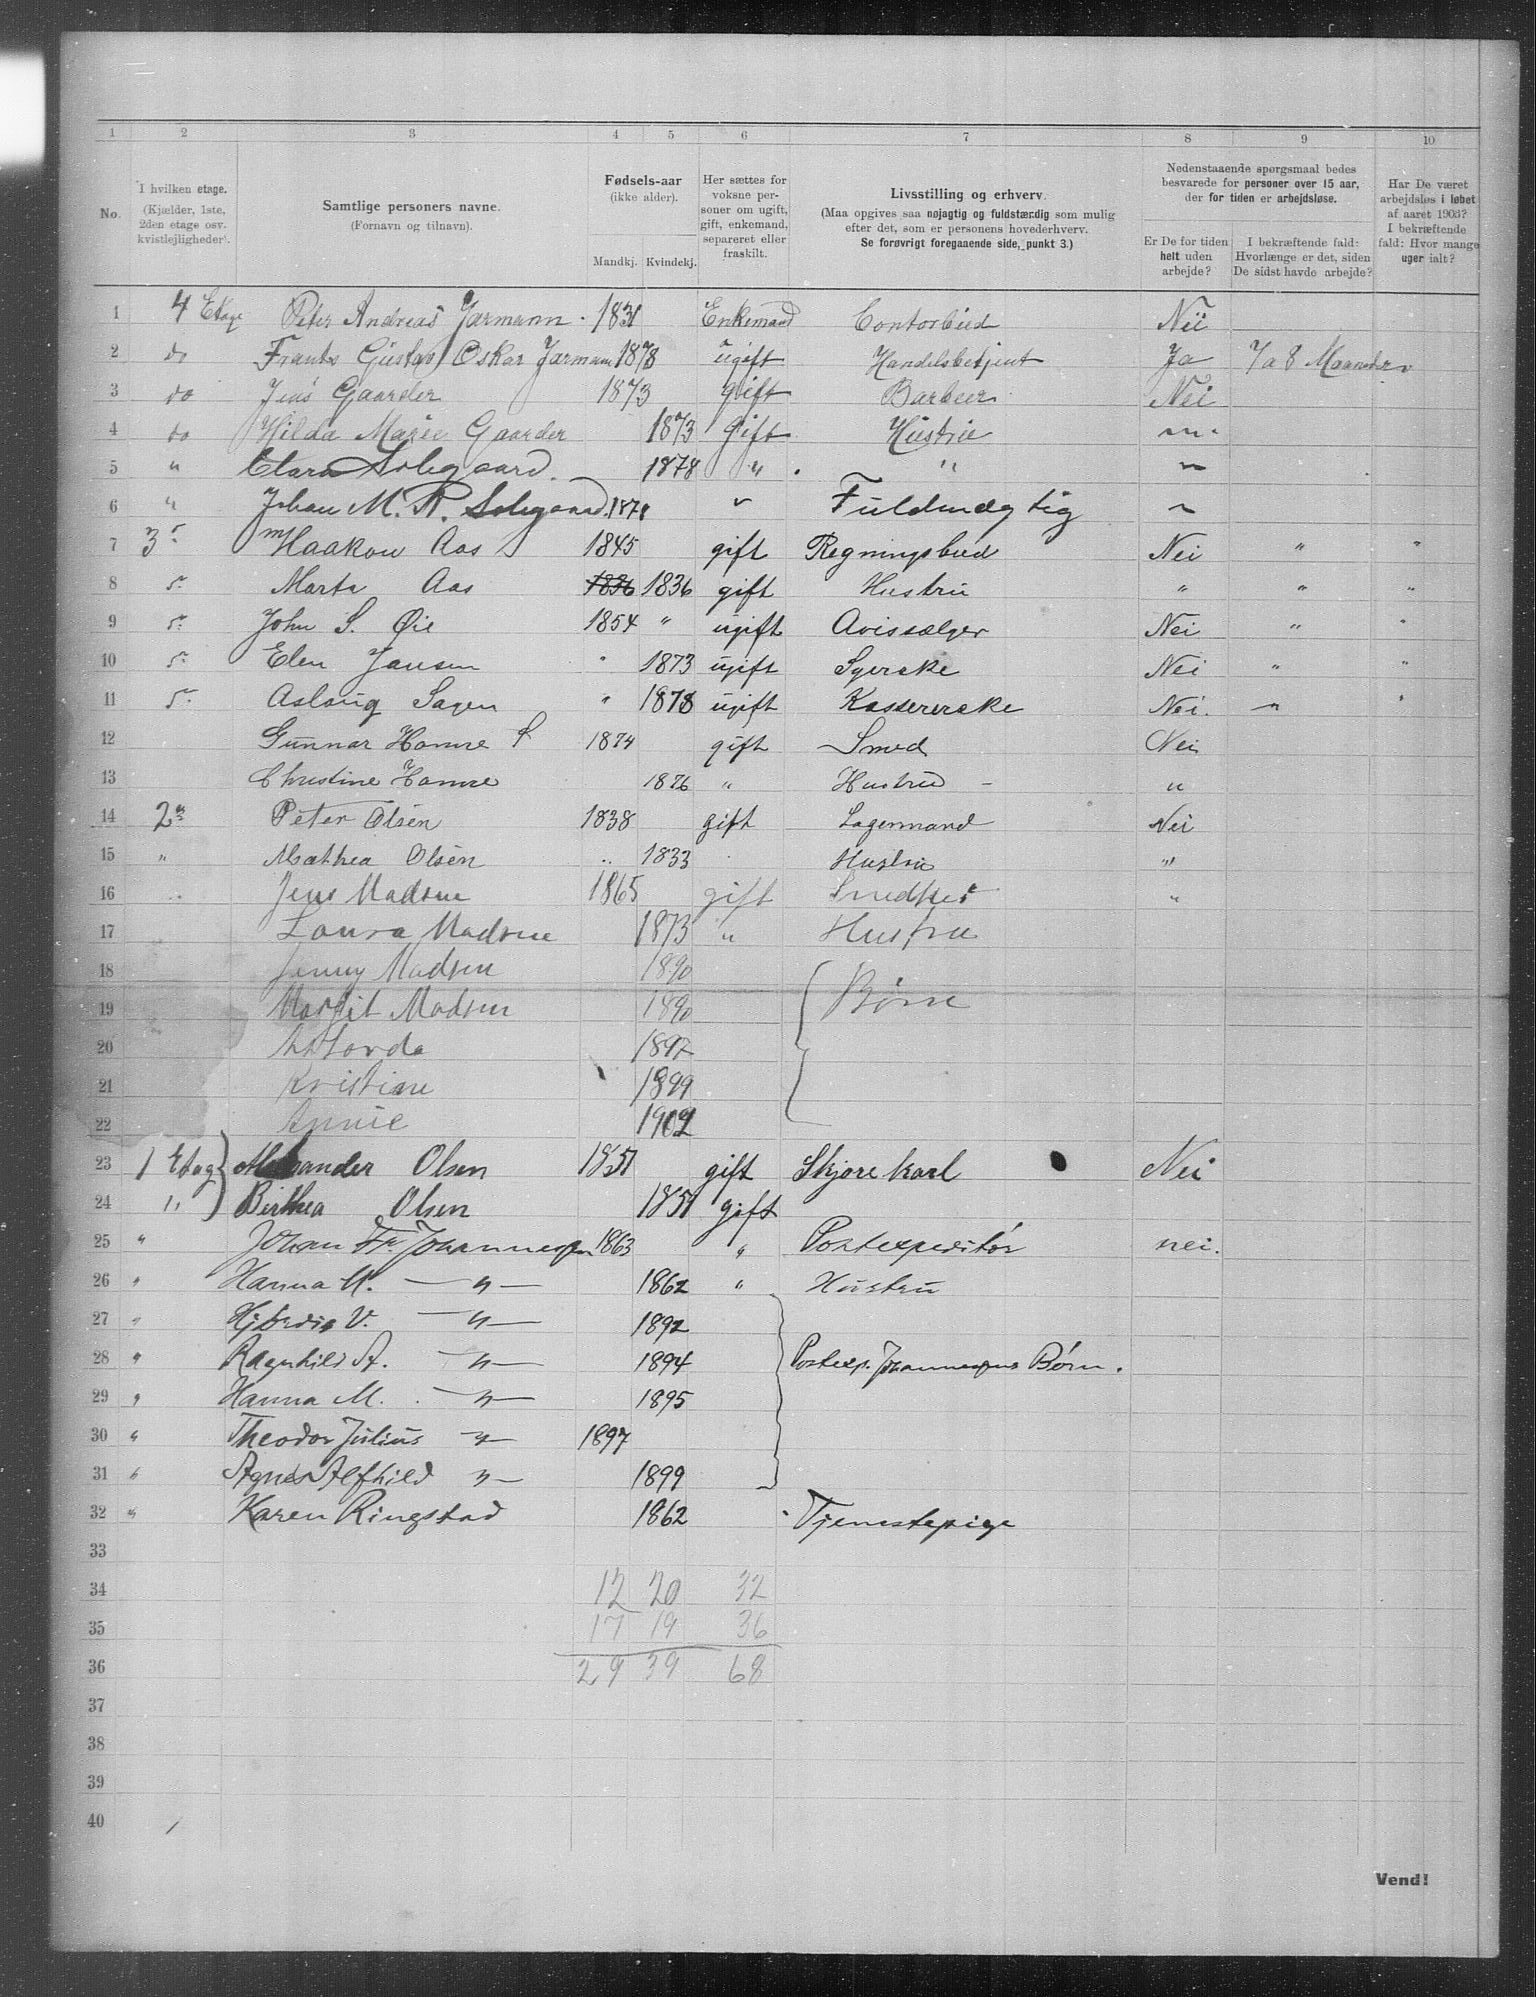 1 2 3 4 5 6 7 8 9 10
No. I hvilken etage. (Kjælder, 1ste, 2den etage osv. kvistlejligheder). Samtlige personers navne. (Fornavn og tilnavn). Fødsels-aar (ikke alder). Mandkj. Kvindekj. Her sættes for voksne personer om ugift, gift, enkemand, separeret eller fraskilt. Livsstilling og erhverv. (Maa opgives saa nøjagtig og fuldstændig som mulig efter det, som er personens hovederhverv. Se forøvrigt foregaaende side, punkt 3.) Nedenstaaende spørgsmaal bedes besvarede for personer over 15 aar, der for tiden er arbejdsløse. Er De for tiden helt uden arbejde? I bekræftende fald: Hvorlænge er det, siden De sidst havde arbejde? Har De været arbejdsløs i løbet af aaret 1903? I bekræftende fald: Hvor mange uger ialt?
1 4 Etage Peter Andreas Jarmann 1831 Enkemand Contorbud Nei
2 do Frants Gustav Oskar Jarmann 1878 ugift Handelsbetjent Ja 7 a 8 Maaneder
3 do Jens Gaarder 1873 gift Barbeer Nei
4 do Hilda Marie Gaarder 1873 Gift Hustru " "
5 " Clara Solegaard 1878 " "
6 " Johan M. R. Solegaard 1871 " Fuldmægtig "
7 3 Haakon Aas 1845 gift Regningsbud Nei " "
8 Marta Aas 1836 1836 gift Hustru " " "
9 John S. Øie 1854 " ugift Avissælger Nei " "
10 Elen Jansen " 1873 ugift Syerske Nei " "
11 Aslaug Sagen " 1878 ugift Kassererske Nei. " "
12 Gunnar Hamre S 1874 gift Smed Nei
13 Christine Hamre 1876 " Hustru "
14 2 Peter Olsen 1838 gift Lagermand Nei
15 " Mathea Olsen " 1833 Hustru "
16 " Jens Madsen 1865 gift Snedker "
17 Laura Madsen 1873 " Hustru
18 Jenny Madsen 1890
19 Margit Madsen 1890 Børn
20 1897
21 Kristine 1899
22 Annie 1902
23 1 Etag Aleksander Olsen 1851 gift Skjørekarl Nei
24 " Birthea Olsen 1851 gift
25 " Johan Fr. Johannessen 1863 " Postexpeditør nei.
26 " Hanna M. — " — 1862 " Hustru
27 " Hjørdis V. — " — 1892
28 " Ragnhild A. — " — 1894 Postexp. Johannessens Børn.
29 " Hanna M. — " — 1895
30 " Theodor Julius — " — 1897
31 " Agnes Alfhild — " — 1899
32 " Karen Ringstad 1862 Tjenestepige
33
34 12 20 32
35 17 19 36
36 29 39 68
37
38
39
40
Vend!